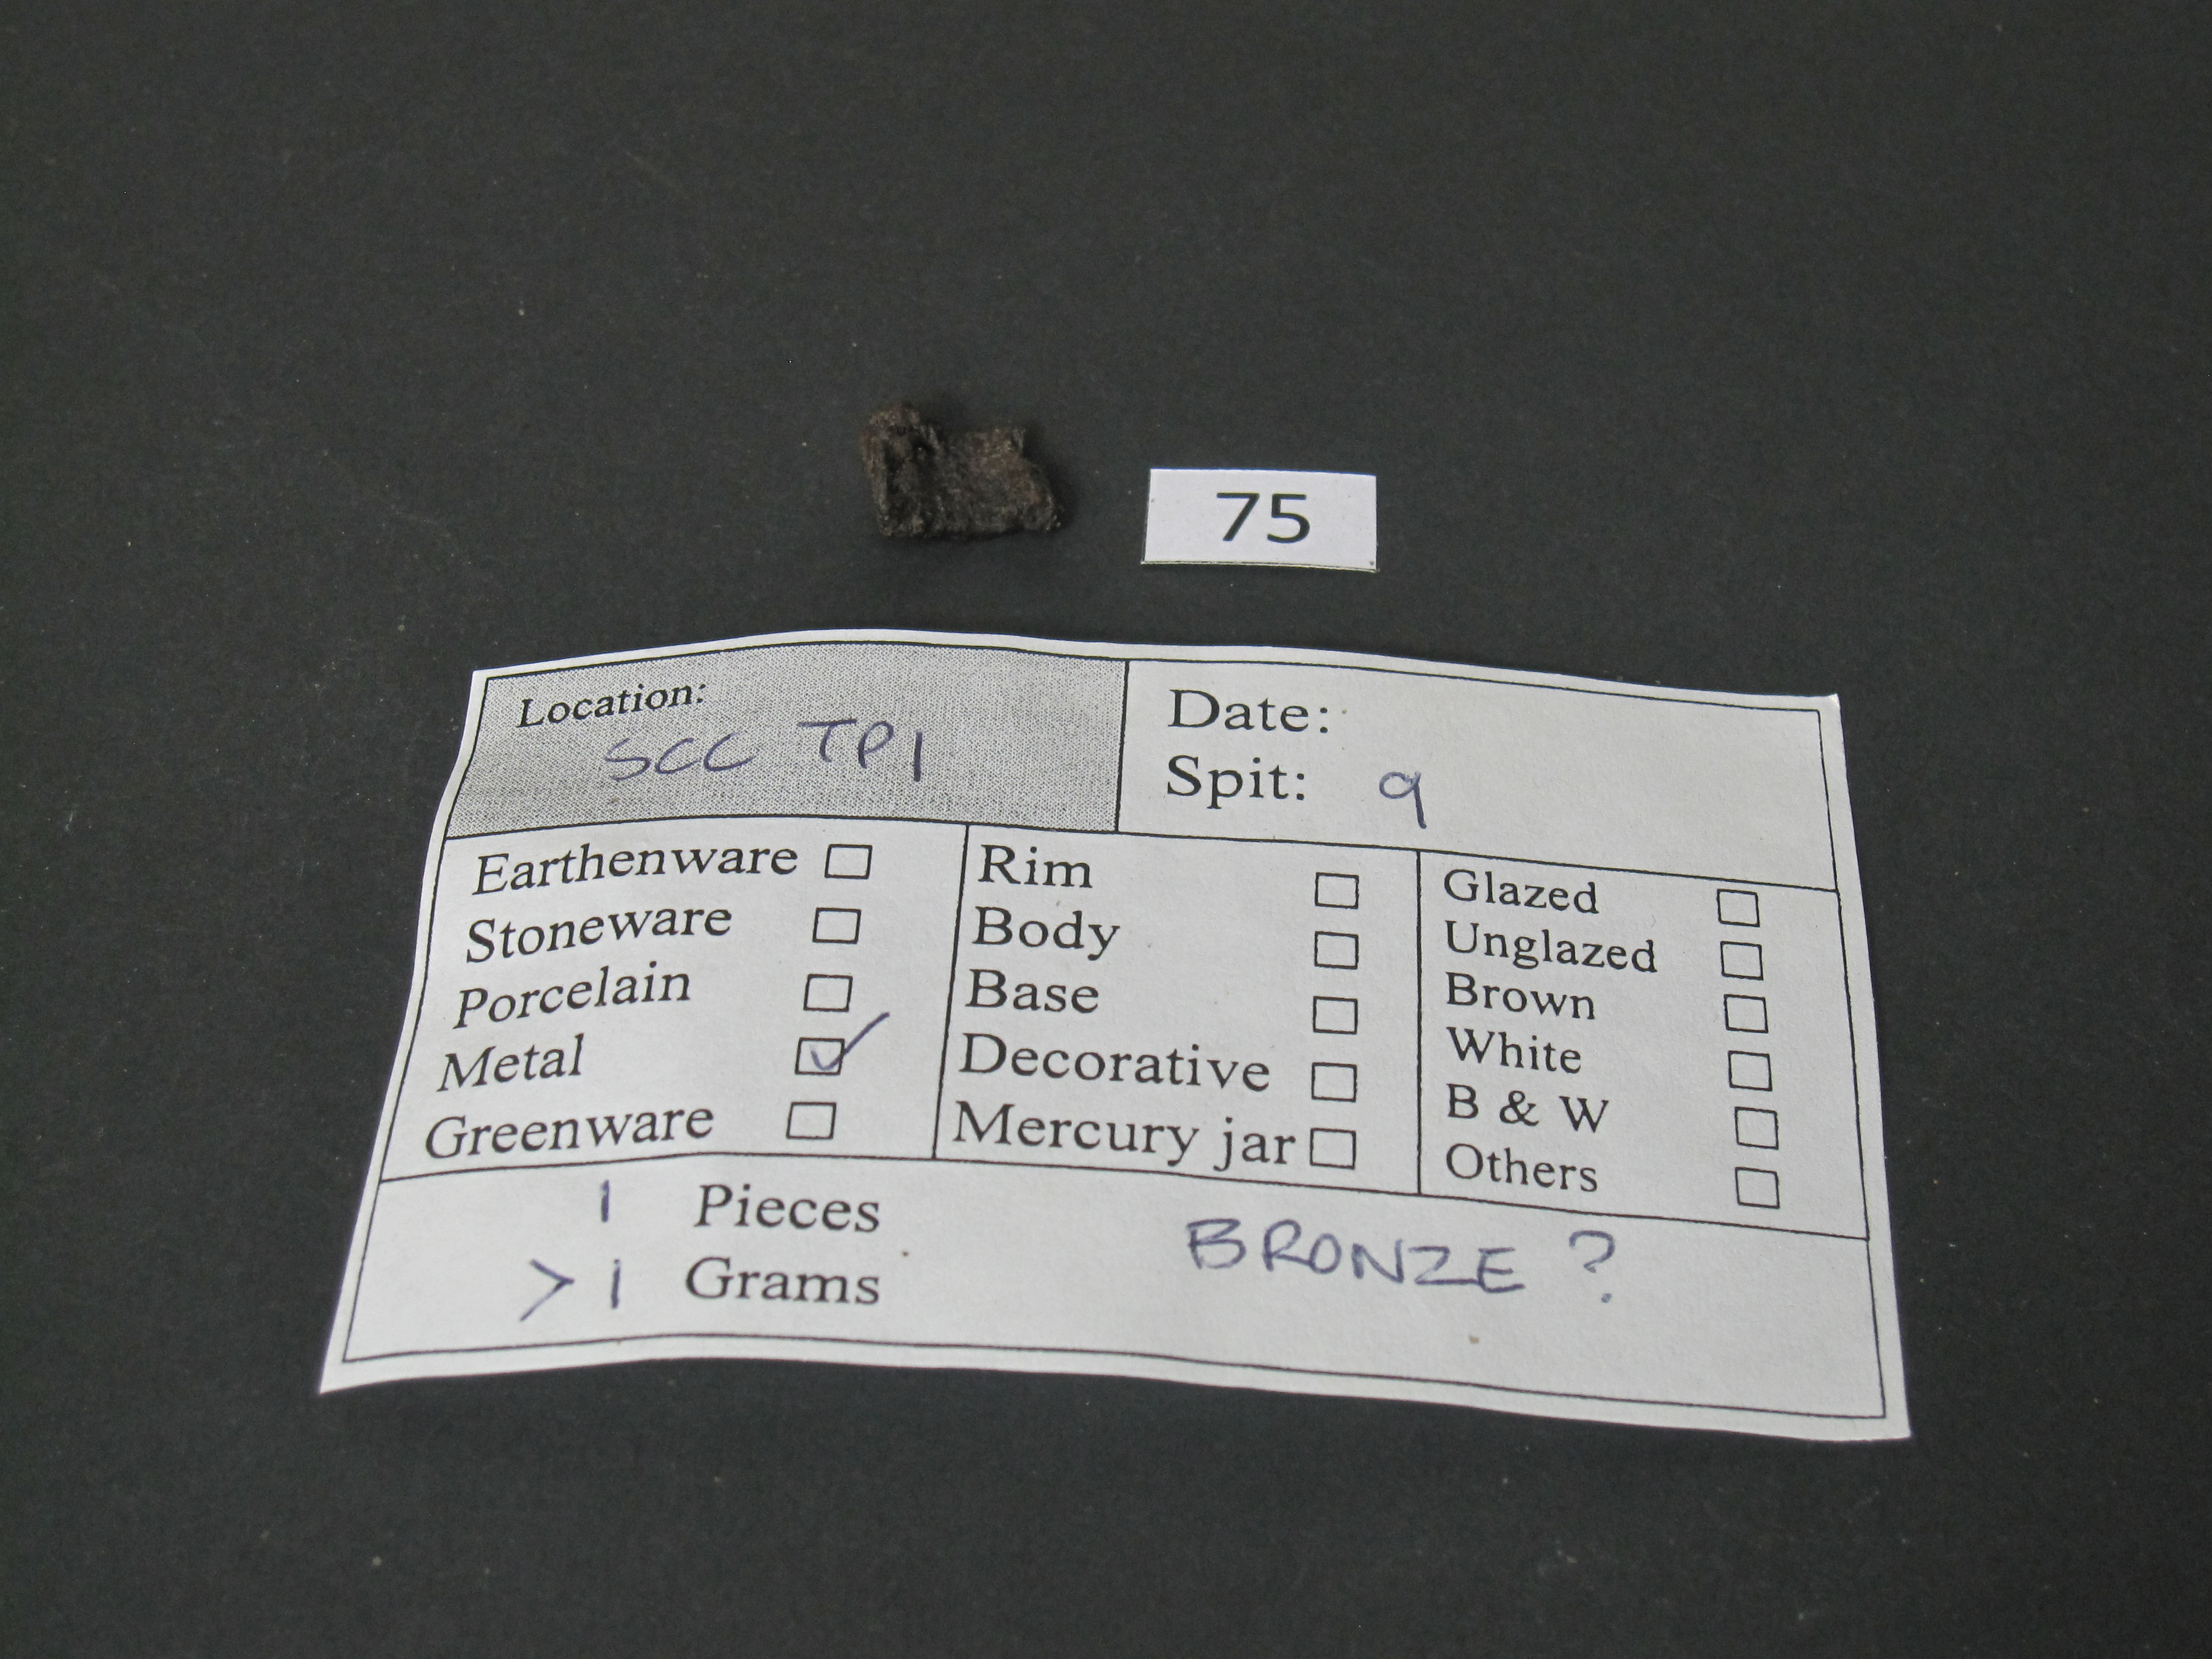 75
Location:
SCC TP1
Date:
Spit: 9
Earthenware
Stoneware
Porcelain
Metal ✓
Greenware
Rim
Body
Base
Decorative
Mercury jar
Glazed
Unglazed
Brown
White
B & W
Others
1 Pieces
> 1 Grams
BRONZE ?